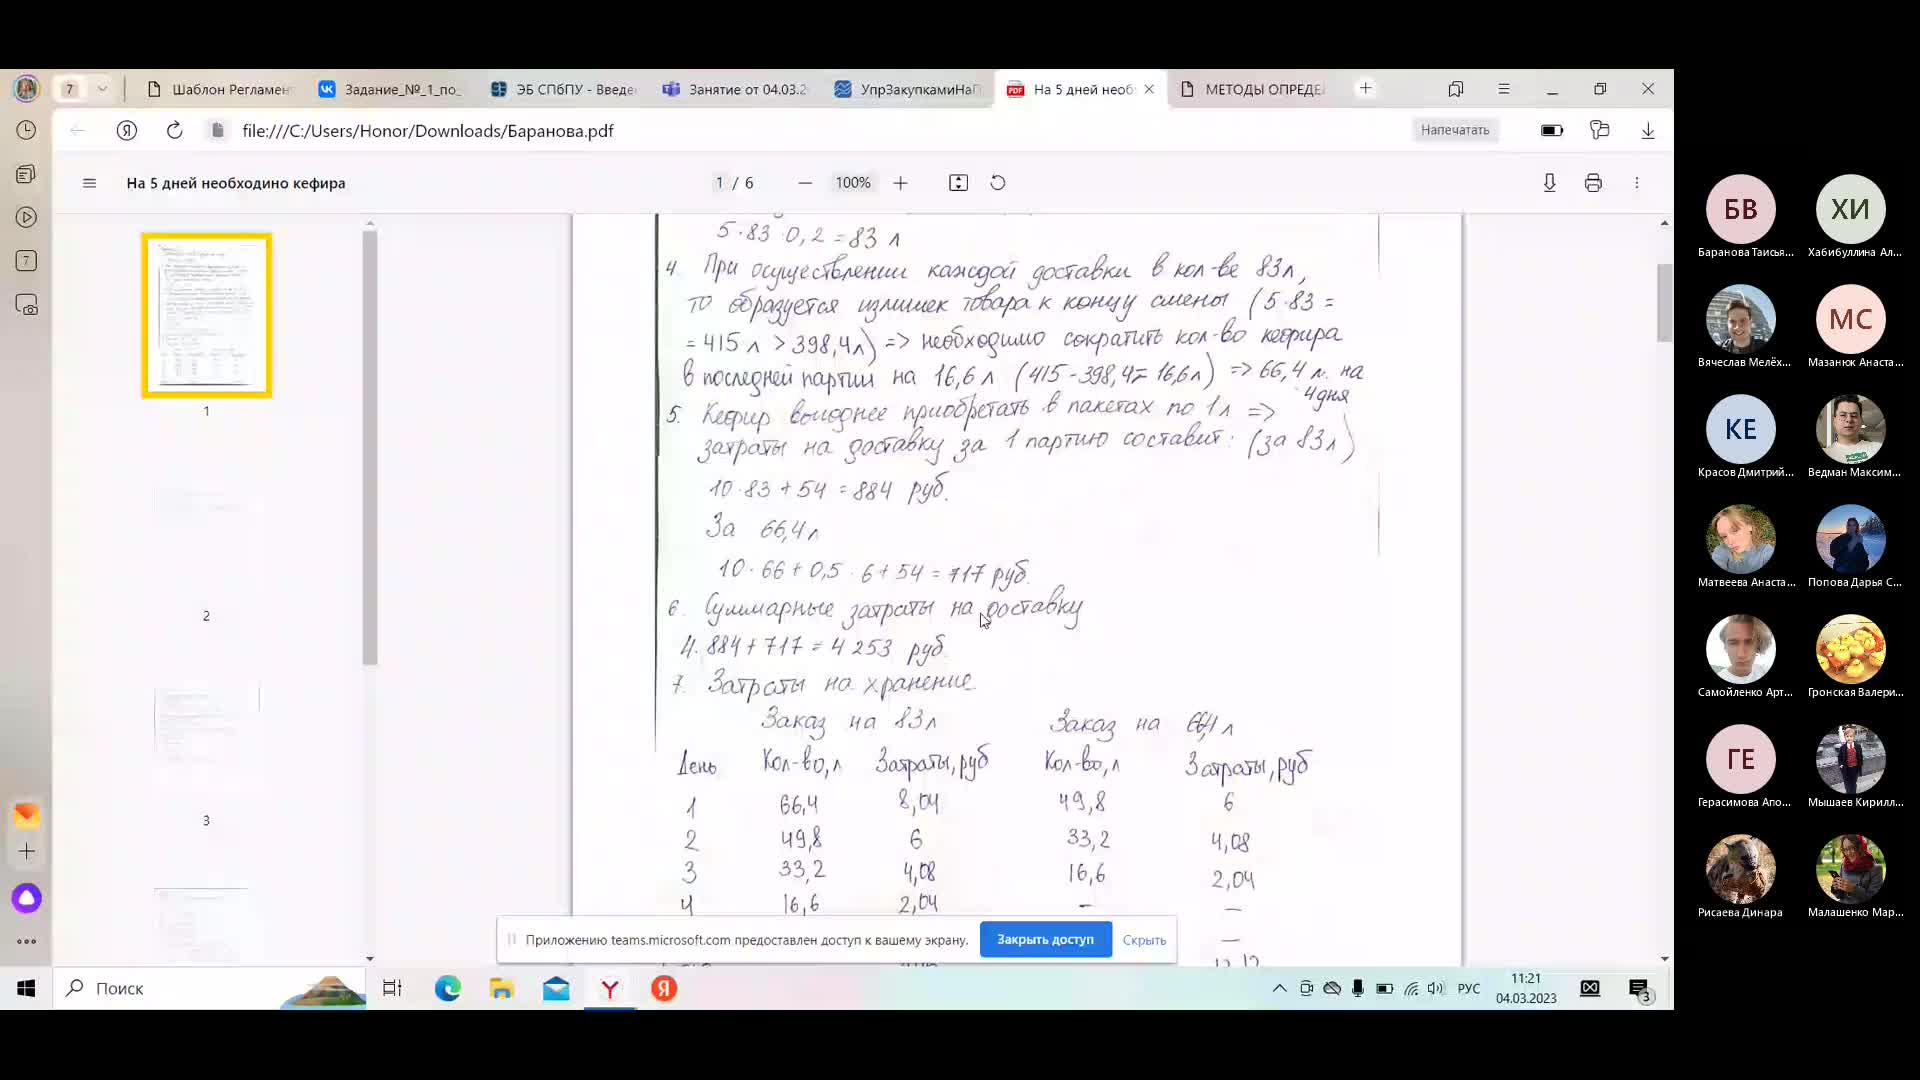 7
Шаблон Регламен
Задание_№_1_по_
ЭБ СПбПУ - Введе
Занятие от 04.03.2
УпрЗакупкамиНаП
На 5 дней необ
МЕТОДЫ ОПРЕДЕ
file:///C:/Users/Honor/Downloads/Баранова.pdf
Напечатать
На 5 дней необходино кефира
1 / 6
100%
7
1
2
3
5·83·0,2=83 л
4. При осуществлении каждой доставки в кол-ве 83л,
то образуется излишек товара к концу смены (5·83 =
= 415 л > 398,4л) => необходимо сократить кол-во кефира
в последней партии на 16,6 л (415-398,4=16,6л) => 66,4 л. на
4дня
5. Кефир выгоднее приобретать в пакетах по 1л =>
затраты на доставку за 1 партию составит: (за 83л)
10·83+54=884 руб.
За 66,4л
10·66+0,5·6+54=717 руб.
6. Суммарные затраты на доставку
4·884+717=4 253 руб.
7. Затраты на хранение
Заказ на 83л Заказ на 66,4 л
День Кол-во, л Затраты, руб Кол-во, л Затраты, руб
1 66,4 8,04 49,8 6
2 49,8 6 33,2 4,08
3 33,2 4,08 16,6 2,04
4 16,6 2,04 – –
–
12,12
Приложению teams.microsoft.com предоставлен доступ к вашему экрану.
Закрыть доступ
Скрыть
Поиск
РУС
11:21
04.03.2023
3
БВ
Баранова Таисья...
ХИ
Хабибуллина Ал...
Вячеслав Мелёх...
МС
Мазанюк Анаста...
КЕ
Красов Дмитрий...
Ведман Максим...
Матвеева Анаста...
Попова Дарья С...
Самойленко Арт...
Гронская Валери...
ГЕ
Герасимова Апо...
Мышаев Кирилл...
Рисаева Динара
Малашенко Мар...